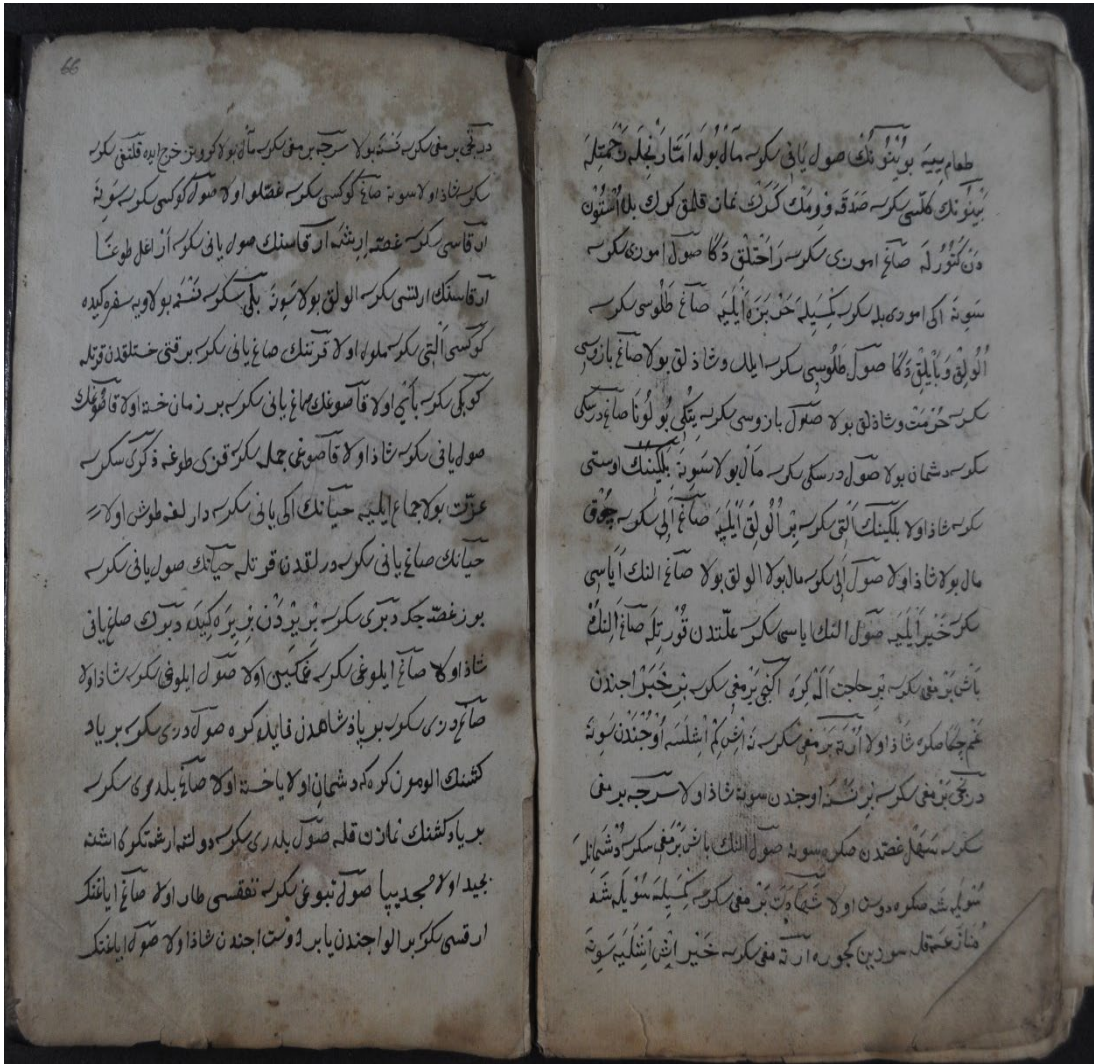 طعام ييیه بوينونك صول يانى سكرسه مال بوله امّا رنجله زحمتله
بينونك كلّسى سكرسه صدقه ويرمك كرك نماز قلمق كرك بلا استون
دن كتورله صاغ اموزى سكرسه راحتلق دكا صول اموزى سكرسه
سونه اكى اموزى بله سكرسه كمسيله حربره ايليه صاغ طلوسى سكرسه
الولق وبايلق دكا صول طلوسى سكرسه ايلك وشاذلق بولا صاغ بازوسى
سكرسه حرمت وشاذلق بولا صول بازوسى سكرسه يتكى بولونا صاغ درسكى
سكرسه دشمان بولا صول درسكى سكرسه مال بولا سونه بلكينك اوستى
سكرسه شاذ اولا بلكينك التى سكرسه بر الولق ايليه صاغ الى سكرسه چوق
مال بولا شاذ اولا صول الى سكرسه مال بولا الولق بولا صاغ النك اياسى
سكرسه خير ايليه صول النك اياسى سكرسه علّتدن قورتله صاغ النك
باش برمغى سكرسه بر حاجت اله كره اكنجى برمغى سكرسه بر خبر اجندن
غم چكا صكره شاذ اولا ارته برمغى سكرسه نه اش كم اشلسه اوجندن سونه
دردنجى برمغى سكرسه بر نسنه اوجندن سونه شاذ اولا سرجه برمغى
سكرسه سهل غصّدن صكره سونه صول النك باش برمغى سكرسه دشمانله
سويلشه صكره دوست اولا شهادت برمغى سكرسه كمسيله سويلشه
منازعه قله سوزين كجوره ارته برمغى سكرسه خير اش اشليه سونه
66
دردنجى برمغى سكرسه نسنه بولا سرجه برمغى سكرسه مال بولا كرو خرج ايده قلتغى سكرسه
سكرسه شاذ اولا سونه صاغ كوكسى سكرسه غصّلو اولا صول كوكسى سكرسه سونه
ارقاسى سكرسه غصّه ارشه ارقاسنك صول يانى سكرسه ار اغل طوغا
ارقاسنك ارتسى سكرسه الولق بولا سونه بلى سكرسه نسنه بولا ويه سفره كيده
كوكسى التى سكرسه ملول اولا قرننك صاغ يانى سكرسه برقتى خستلقدن قرتله
كوبكى سكرسه باى اولا قاصوغنك صاغ يانى سكرسه بر زمان خسته اولا قاصوغنك
صول يانى سكرسه شاذ اولا قاصوغى جمله سكرسه قزى طوغه ذكرى سكرسه
عزت بولا جماع ايليه حيانك اكى يانى سكرسه دارلغه طوش اولا
حيانك صاغ يانى سكرسه درلقدن قرتله حيانك صول يانى سكرسه
بوز غصّه چكه دبرى سكرسه بر يردن بر يره كيده دبرك صاغ يانى
شاذ اولا صاغ ايلوغى سكرسه غمكين اولا صول ايلوغى سكرسه شاذ اولا
صاغ دزى سكرسه بر پادشاهدن فايده كوره صول دزى سكرسه بر ياد
كشنك الومون كوره كه دشمانى اولا يا خسته اولا صاغ بلدرى سكرسه
بر ياد كشنك نمازن قله صول بلدرى سكرسه دولته ارشه تكرى اشنه
بجيد اولا مسجد يپا صول توبوغى سكرسه نفقسى طار اولا صاغ اياغنك
ارقسى سكرسه بر الو اجندن يا بر دوست اجندن شاذ اولا صول اياغنك